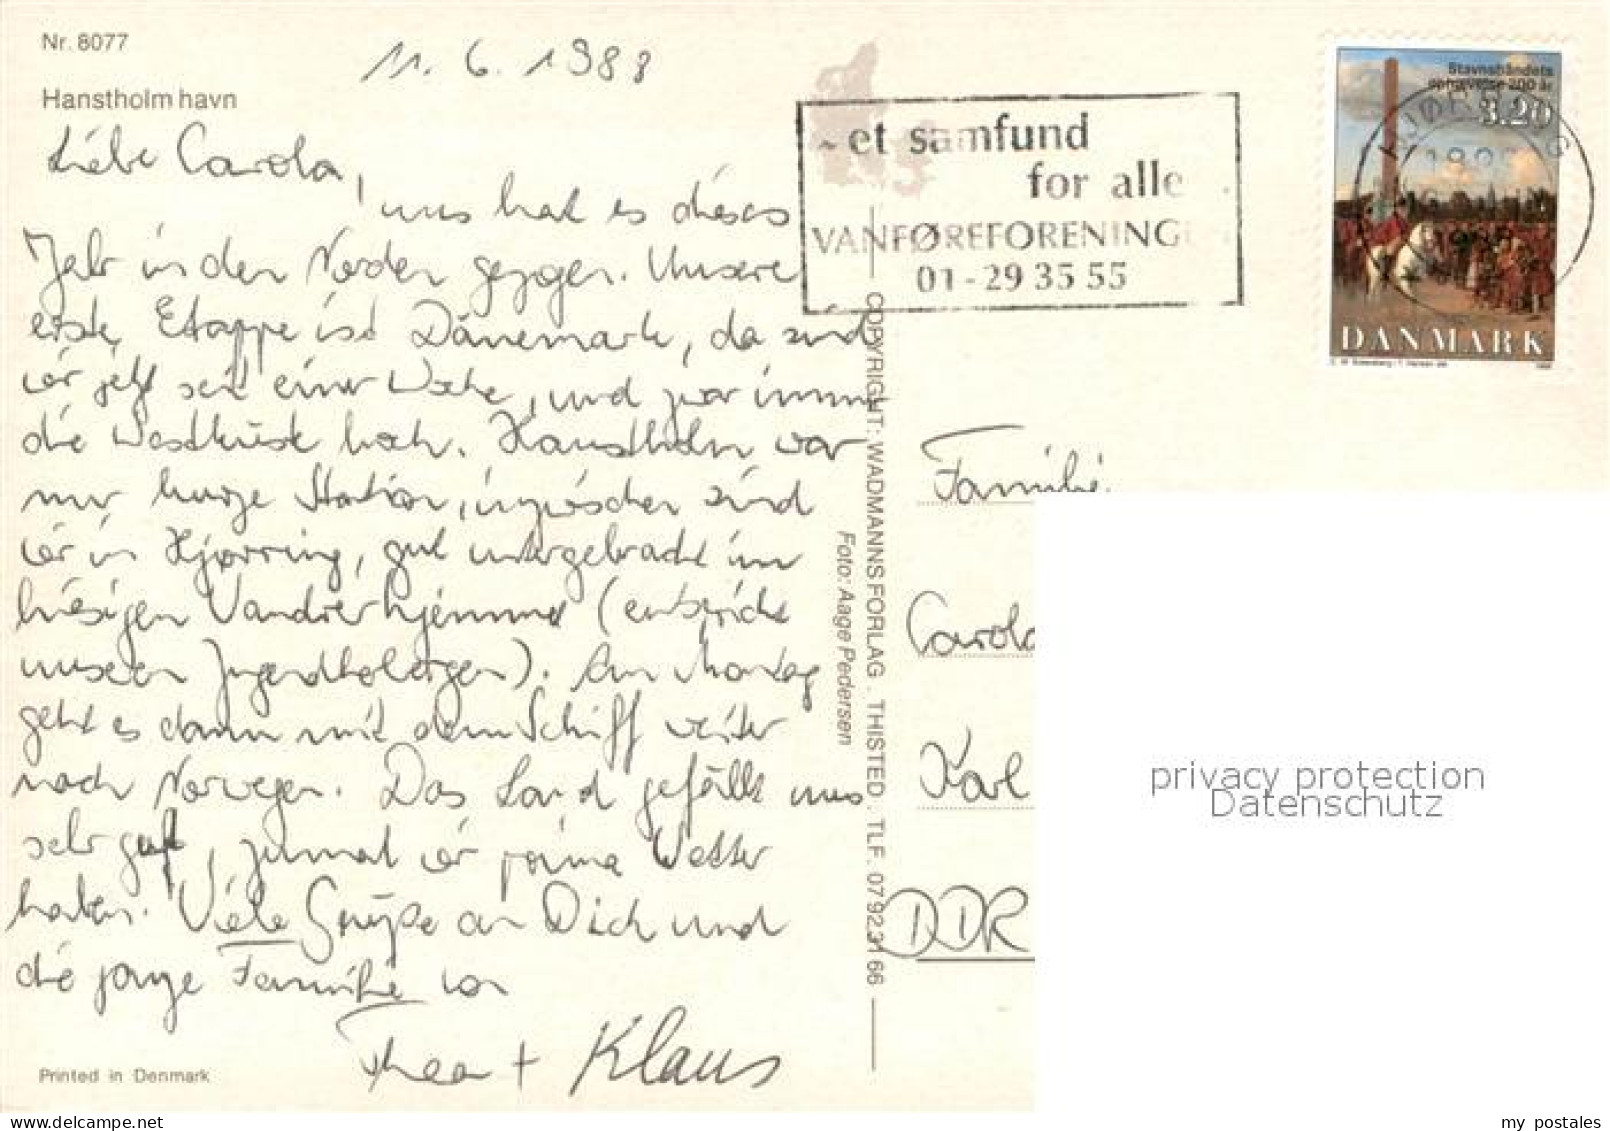 Nr. 8077
11. 6. 1988
Hanstholm havn
Liebe Carola,
uns hat es dieses
Jahr in den Norden gezogen. Unsere
erste Etappe ist Dänemark, da sind
wir jetzt seit einer Woche, und zwar immer
die Westküste hoch. Hanstholm war
nur kurze Station, inzwischen sind
wir in Hjørring, gut untergebracht im
hiesigen Vandrerhjemmet (entspricht
unseren Jugendherbergen). Am Montag
geht es dann mit dem Schiff weiter
nach Norwegen. Das Land gefällt uns
sehr gut, zumal wir prima Wetter
haben. Viele Grüße an Dich und
die ganze Familie von
Thea + Klaus
Printed in Denmark
COPYRIGHT: WADMANNS FORLAG . THISTED . TLF. 07 92 31 66
Foto: Aage Pedersen
~ et samfund
for alle
VANFØREFORENING
01 - 29 35 55
Stavnsbåndets
ophævelse 200 år
3.20
DANMARK
HJØRRING
1988
Familie
Carola
Karl
DDR
privacy protection
Datenschutz
www.delcampe.net
my postales